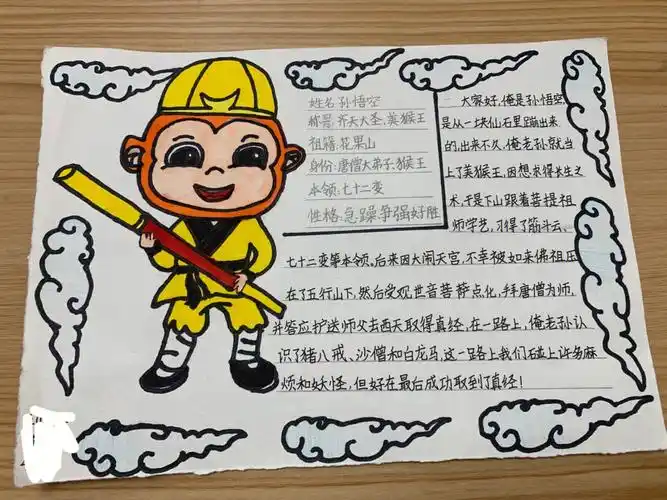 姓名:孙悟空
称号:齐天大圣、美猴王
祖籍:花果山
身份:唐僧大弟子、猴王
本领:七十二变
性格:急躁争强好胜
大家好,俺是孙悟空,
是从一块仙石里蹦出来
的,出来不久,俺老孙就当
上了美猴王,因想求得长生之
术,于是下山跟着菩提祖
师学艺,习得了筋斗云、
七十二变等本领。后来因大闹天宫,不幸被如来佛祖压
在了五行山下,然后受观世音菩萨点化,拜唐僧为师,
并答应护送师父去西天取得真经,在一路上,俺老孙认
识了猪八戒、沙僧和白龙马,这一路上我们碰上许多麻
烦和妖怪,但好在最后成功取到了真经!